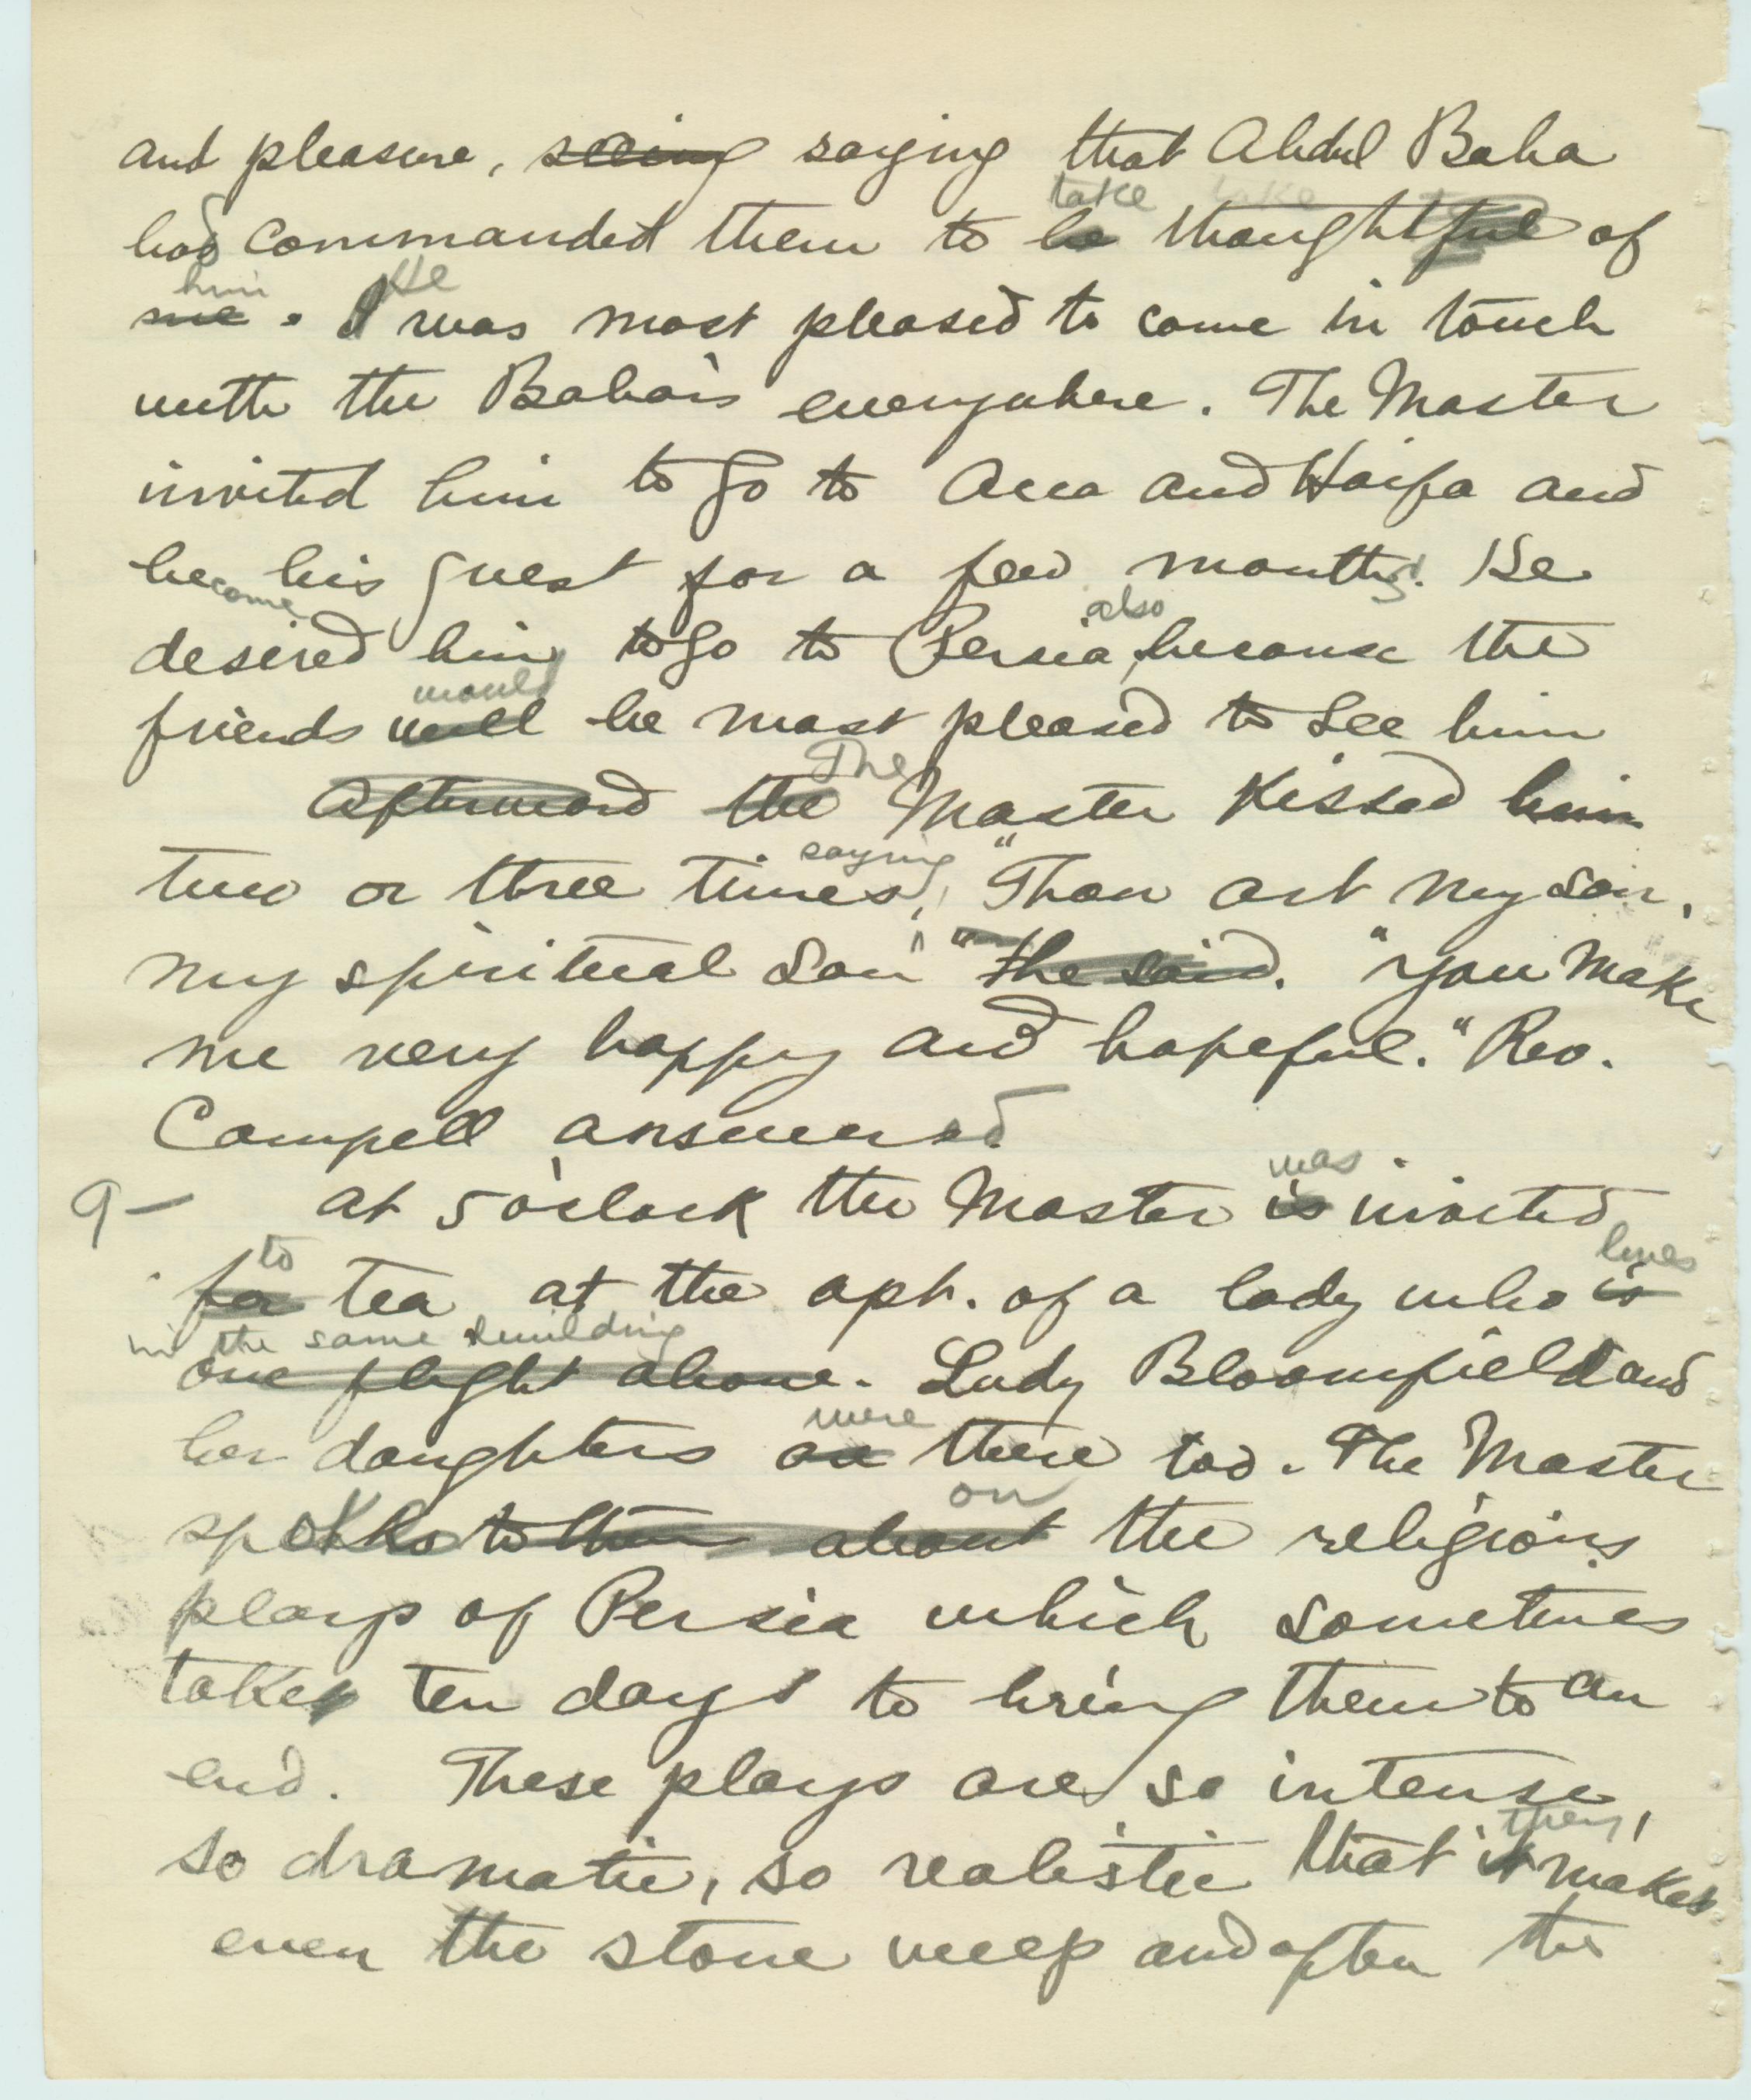 and pleasure, seeing saying that Abdul Baha
take take
had commanded them to be thoughtful of
him He
me. I was most pleased to come in touch
with the Bahais everywhere. The Master
invited him to go to Acca and Haifa and
be his guest for a few months. He
come also
desired him to go to Persia, because the
would
friends will be most pleased to see him
The
Afterward the Master kissed him
saying
two or three times, "Thou art my son,
my spiritual son" he said. "You make
me very happy and hopeful." Rev.
Campell answered.
was
9- at 5 o'clock the Master is invited
to lives
for tea at the apt. of a lady who is
in the same building
one flight above. Lady Bloomfield and
were
her daughters are there too. The Master
on
spoke to them about the religious
plays of Persia which sometimes
takes ten days to bring them to an
end. These plays are so intense,
they
so dramatic, so realistic that it makes
even the stone weep and often the